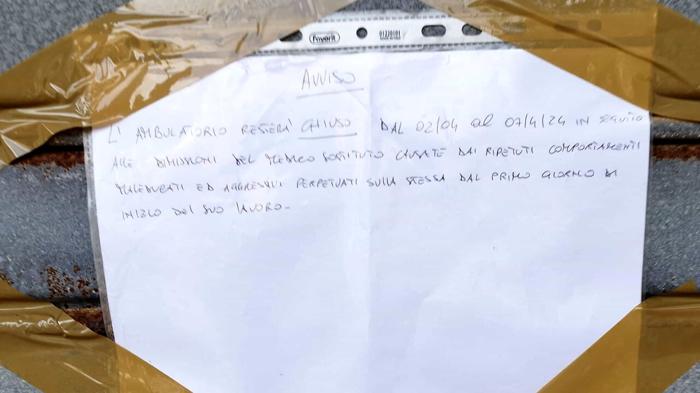 Favorit
AVVISO
L'AMBULATORIO RESTERA' CHIUSO DAL 02/04 al 07/4/24 IN SEGUITO
ALLE DIMISSIONI DEL MEDICO SOSTITUTO CAUSATE DAI RIPETUTI COMPORTAMENTI
MALEDUCATI ED AGGRESSIVI PERPETUATI SULLA STESSA DAL PRIMO GIORNO DI
INIZIO DEL SUO LAVORO.